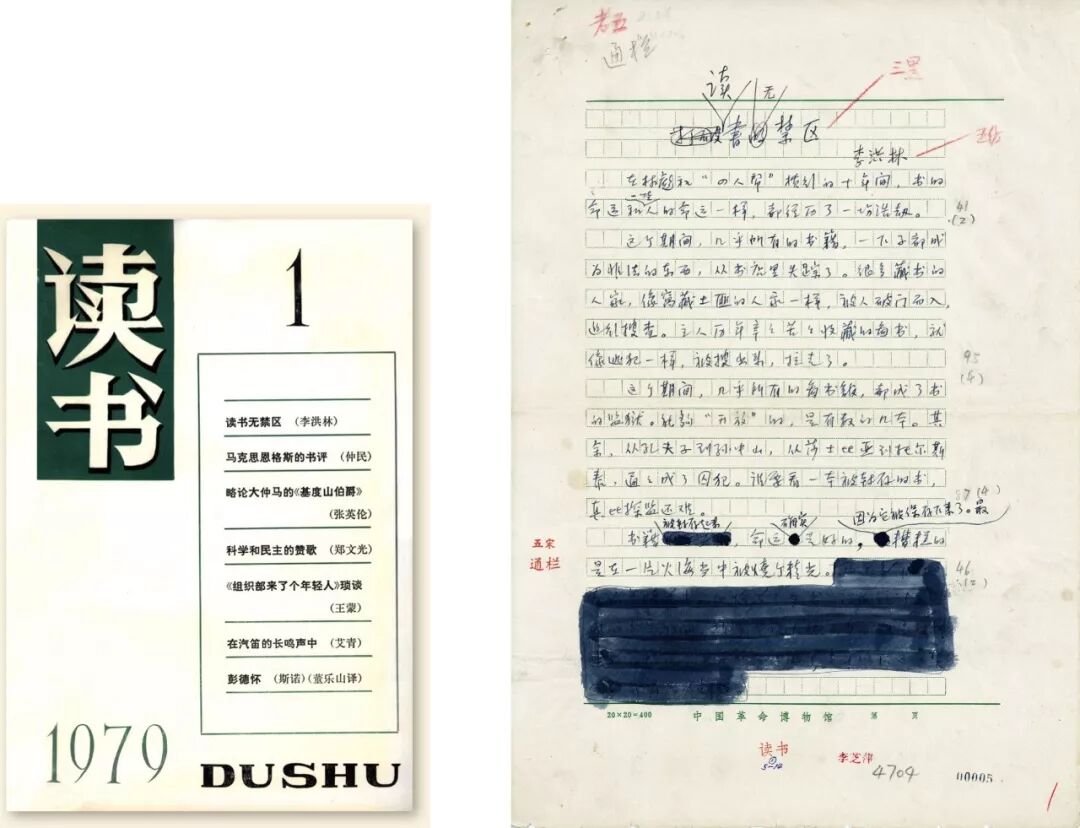 读书
1
读书无禁区 (李洪林)
马克思恩格斯的书评 (仲民)
略论大仲马的《基度山伯爵》
(张英伦)
科学和民主的赞歌 (郑文光)
《组织部来了个年轻人》琐谈
(王蒙)
在汽笛的长鸣声中 (艾青)
彭德怀 (斯诺)(董乐山译)
1979
DUSHU
通栏
三黑
读 无
书 禁区
李洪林
在林彪和“四人帮”横行的十年间,书的
命运和人的命运一样,都经历了一场浩劫。
41
(2)
这个期间,几乎所有的书籍,一下子都成
为非法的东西,从书店里失踪了。很多藏书的
人家,像窝藏土匪的人家一样,被人破门而入,
进行搜查。主人历年辛辛苦苦收藏的图书,就
像逃犯一样,被搜出来,拉走了。
95
(4)
这个期间,几乎所有的图书馆,都成了书
的监狱。能够“开放”的,是有数的几本。其
余,从孔夫子到孙中山,从莎士比亚到托尔斯
泰,通通成了囚犯。谁要看一本被封存的书,
真比探监还难。
87 (4)
被封存起来 确实 因为它被保存下来了。最
书籍,命运是好的,糟糕的
是在一片火海当中被烧个精光。
46
(2)
五宋
通栏
20×20=400 中国革命博物馆 第 页
读书
①
5-14
李芝萍
4704
00005
1